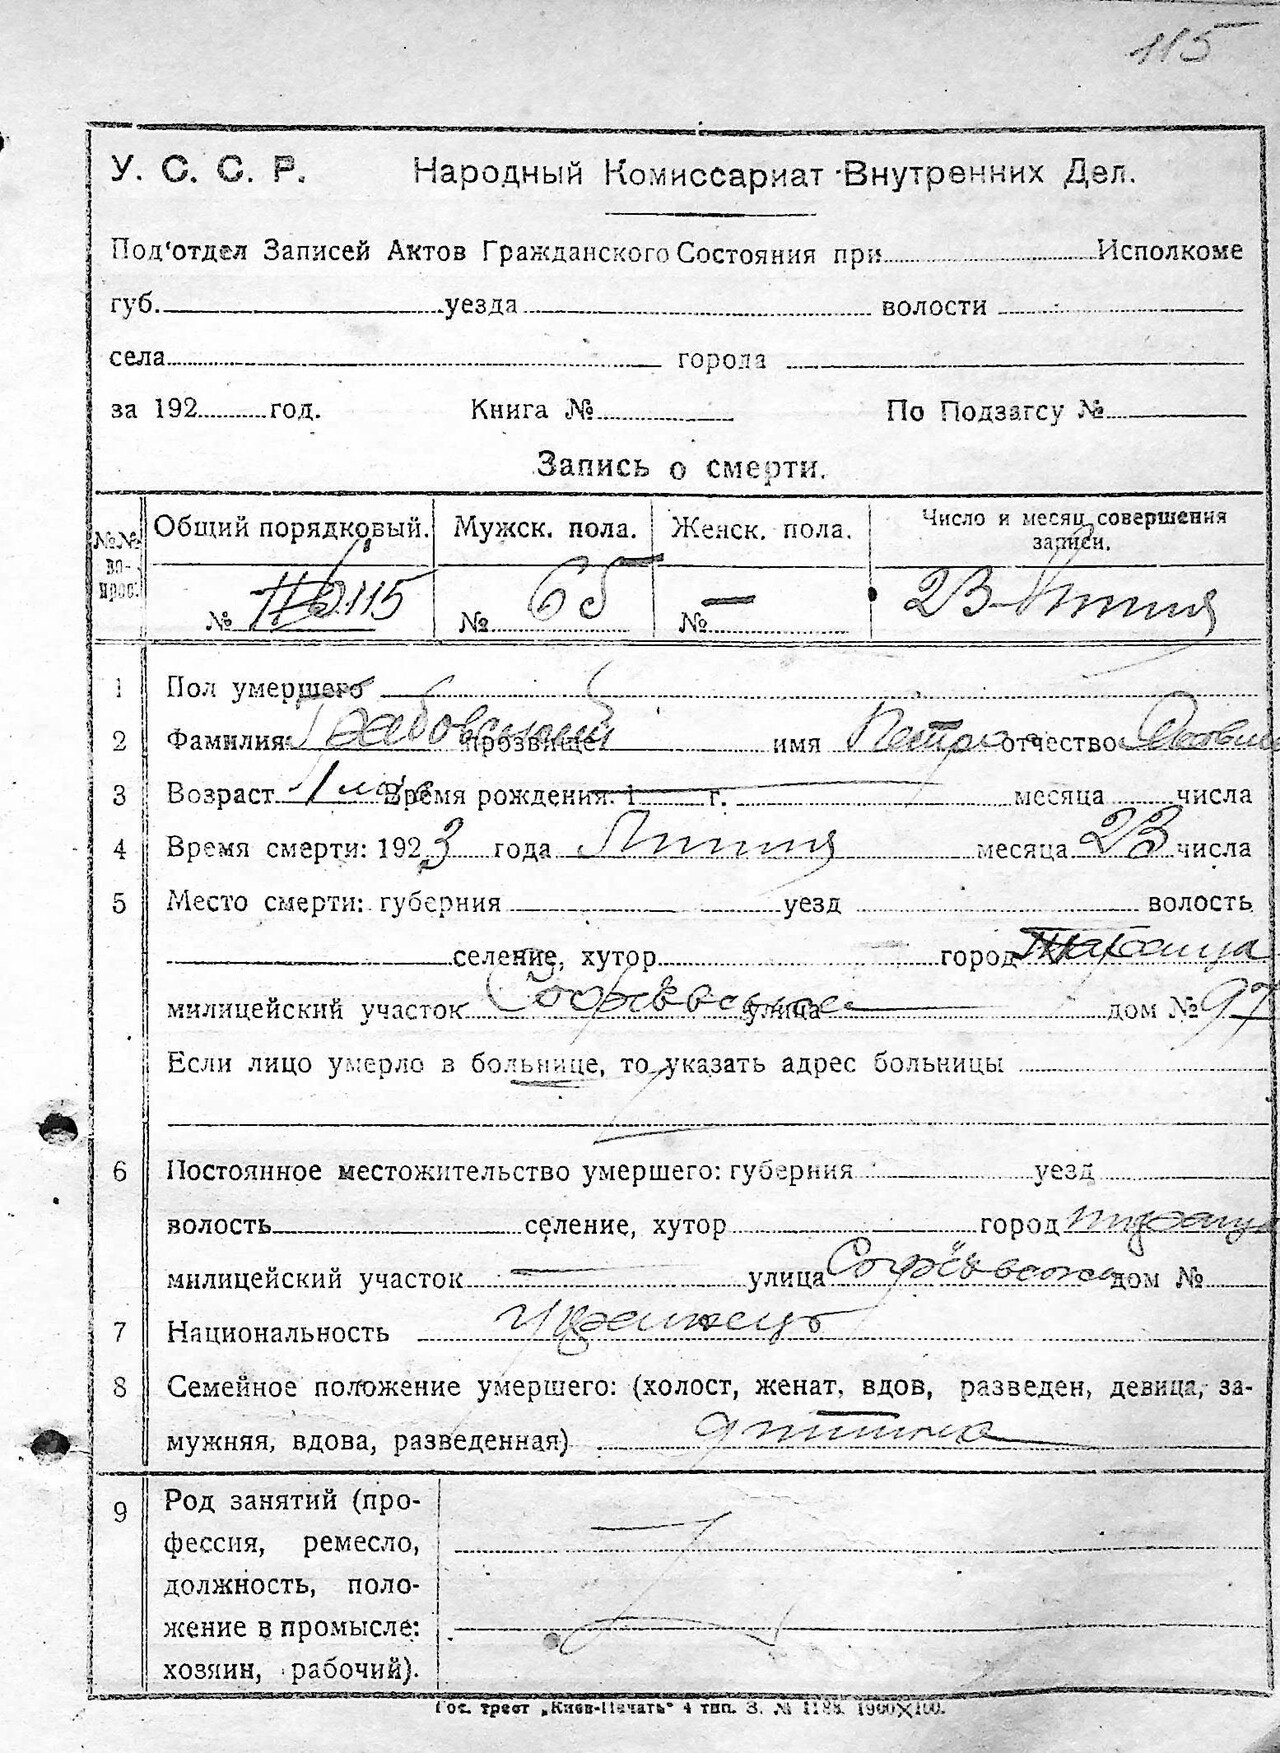 115
У. С. С. Р. Народный Комиссариат Внутренних Дел.
Под'отдел Записей Актов Гражданского Состояния при Исполкоме
губ. уезда волости
села города
за 192 год. Книга № По Подзагсу №
Запись о смерти.
№№ во-прос. Общий порядковый. Мужск. пола. Женск. пола. Число и месяц совершения записи.
№ 115 № 65 № — 23 Липня
1 Пол умершего
2 Фамилия: Грабовський прозвище имя Петро отчество
3 Возраст 1 Время рождения: 1 г. месяца числа
4 Время смерти: 1923 года Липня месяца 23 числа
5 Место смерти: губерния уезд волость
селение, хутор город Тараща
милицейский участок Софіевська улица дом № 97
Если лицо умерло в больнице, то указать адрес больницы
6 Постоянное местожительство умершего: губерния уезд
волость селение, хутор город Тараща
милицейский участок — улица Софіевська дом №
7 Национальность українець
8 Семейное положение умершего: (холост, женат, вдов, разведен, девица, за-
мужняя, вдова, разведенная) дитина
9 Род занятий (про-
фессия, ремесло,
должность, поло-
жение в промысле:
хозяин, рабочий).
Гос. трест „Киев-Печать" 4 тип. З. № 1188. 1900×100.